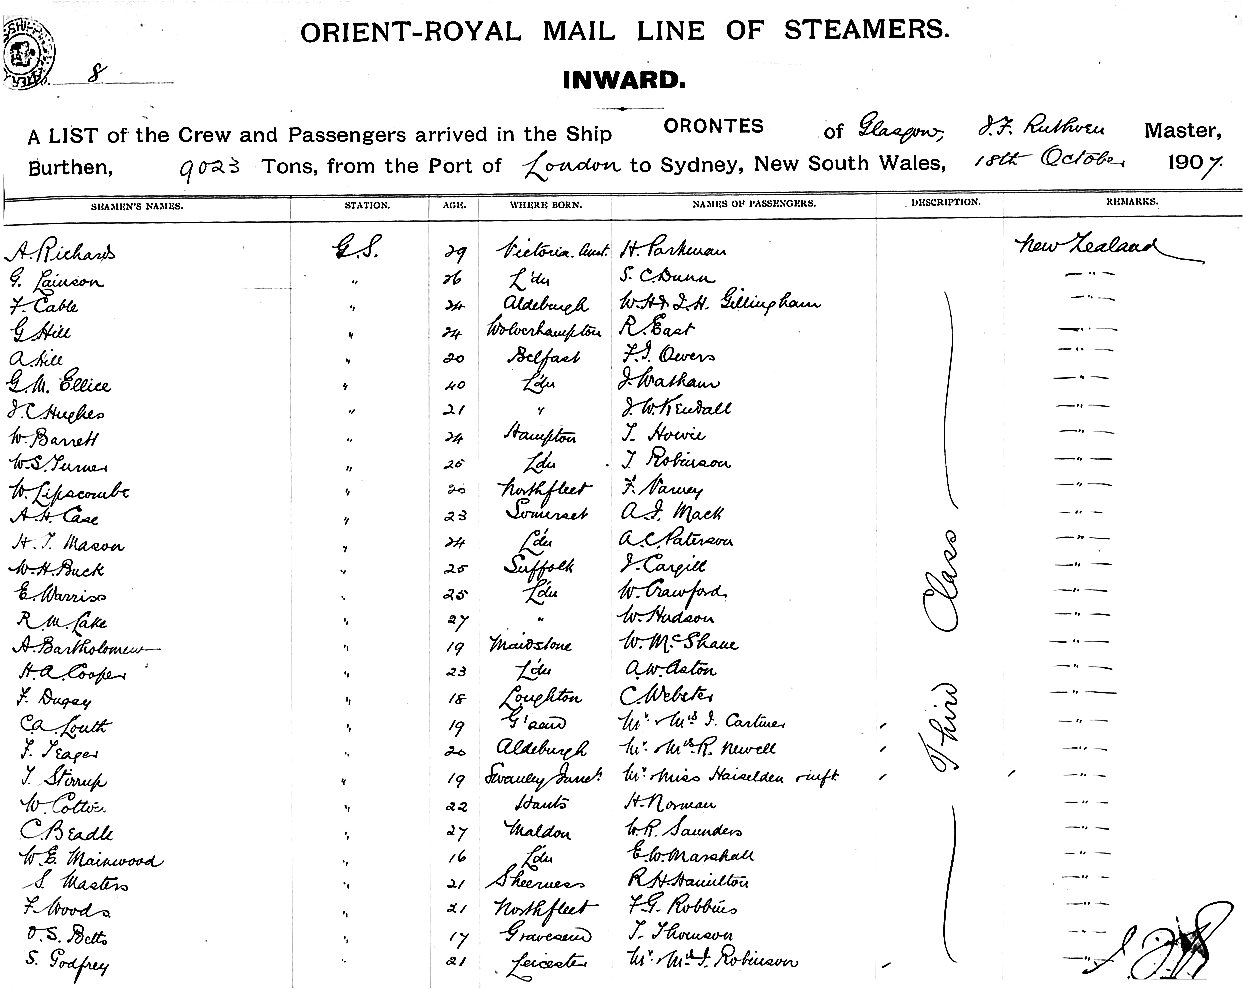 ORIENT-ROYAL MAIL LINE OF STEAMERS.
8
INWARD.
A LIST of the Crew and Passengers arrived in the Ship ORONTES of Glasgow, J. F. Ruthven Master,
Burthen, 9023 Tons, from the Port of London to Sydney, New South Wales, 18th October 1907.
SEAMEN'S NAMES. STATION. AGE. WHERE BORN. NAMES OF PASSENGERS. DESCRIPTION. REMARKS.
A. Richards G.S. 29 Victoria. Aust. H. Parkman New Zealand
G. Lainson " 26 L'dn S. C. Dunn — " —
F. Cable " 24 Aldeburgh W. H. & J. H. Gillingham — " —
G Hill " 24 Wolverhampton R. East — " —
A. Hill " 20 Belfast F. J. Owers — " —
G. M. Ellice " 40 L'dn J. Watham — " —
J C Hughes " 21 " J. W. Kendall — " —
W. Barrett " 24 Hampton T. Howie — " —
W. S. Turner " 25 L'dn T Robinson — " —
W. Lipscombe " 20 Northfleet F. Varney — " —
A. H. Case " 23 Somerset A. J. Mack — " —
H. T. Mason " 24 L'dn A. C. Paterson — " —
W. H. Buck " 25 Suffolk J. Cargill — " —
E. Warriss " 25 L'dn W. Crawford — " —
R. M. Lake " 27 " W. Hudson — " —
A Bartholomew " 19 Maidstone W. McShane — " —
H. A. Cooper " 23 L'dn A. W. Aston — " —
F. Dugay " 18 Loughton C. Webster — " —
C A Louth " 19 G'send Mr. & Mrs J. Cartmer — " —
F. Yeager " 20 Aldeburgh Mr. & Mrs R. Newell — " —
T. Stirrup " 19 Swanley Junct. Mr. & Miss Haiselden & inft — " —
W. Cotter " 22 Hants H. Norman — " —
C. Beadle " 27 Maldon W. R. Saunders — " —
W. E. Mainwood " 16 L'dn E. W. Marshall — " —
S Masters " 21 Sheerness R H Hamilton — " —
F. Woods " 21 Northfleet F. G. Robbins — " —
O. S. Betts " 17 Gravesend T. Thomson — " —
S. Godfrey " 21 Leicester Mr. & Mrs J. Robinson — " —
Third Class